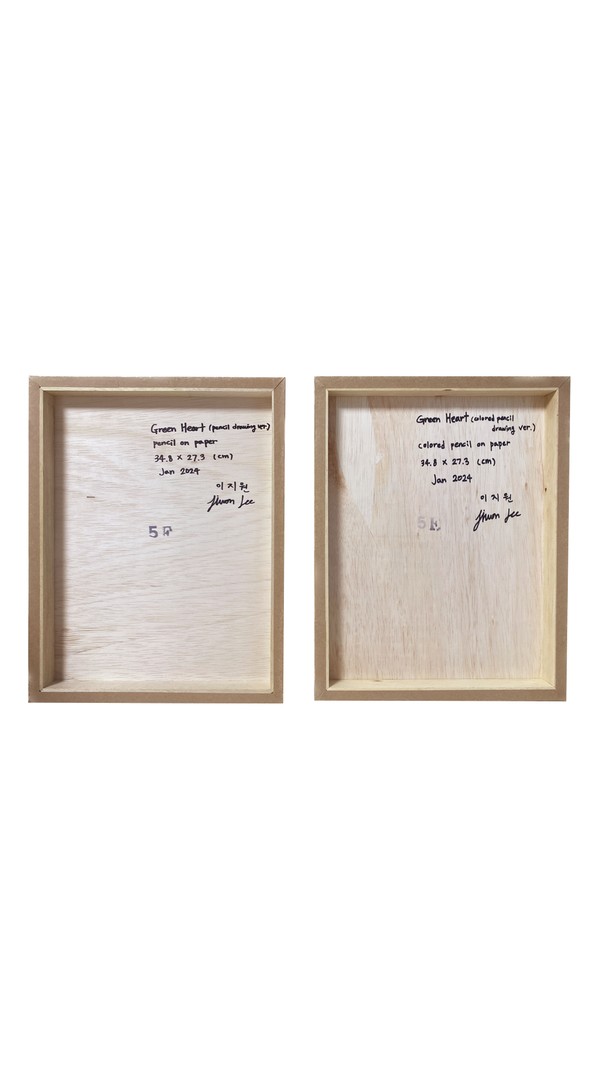 Green Heart (pencil drawing ver.)
pencil on paper
34.8 × 27.3 (cm)
Jan 2024
이지원
Jiwon Lee
5F
Green Heart (colored pencil
drawing ver.)
colored pencil on paper
34.8 × 27.3 (cm)
Jan 2024
이지원
Jiwon Lee
5F